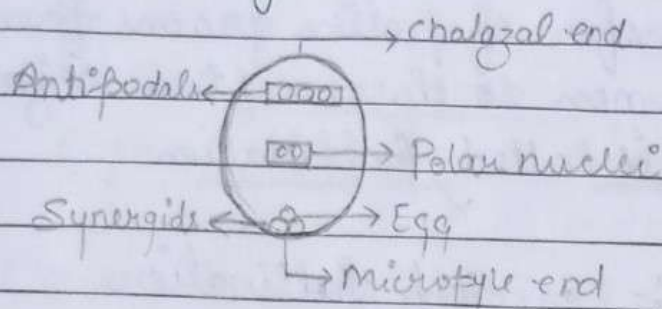 chalazal end
Antipodals
Polar nuclei
Synergids
Egg
micropyle end